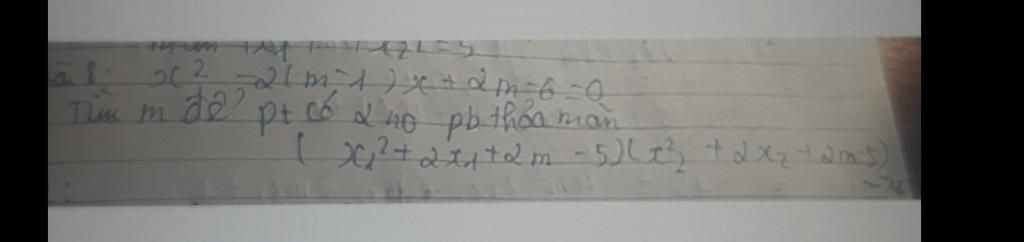 x2 = 5
bài 8: x² - 2(m-1)x + 2m-6 = 0
Tìm m để pt có 2 no pb thỏa mãn
( x₁² + 2x₁ + 2m - 5)(x₂² + 2x₂ + 2m-5)